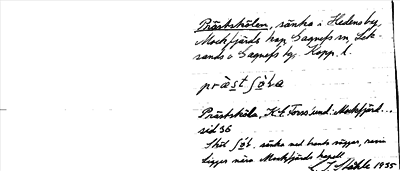 Prästskölen, sänka i Hedens by,
Mockfjärds kap Gagnefs sn, Lek-
sands o Gagnefs bg. Kopp. l.
Prästsköla, K. E. Forss' und. Mockfjärd...
sid 36
Sköl, sänka med branta väggar,
ligger nära Mockfjärds kapell
1935